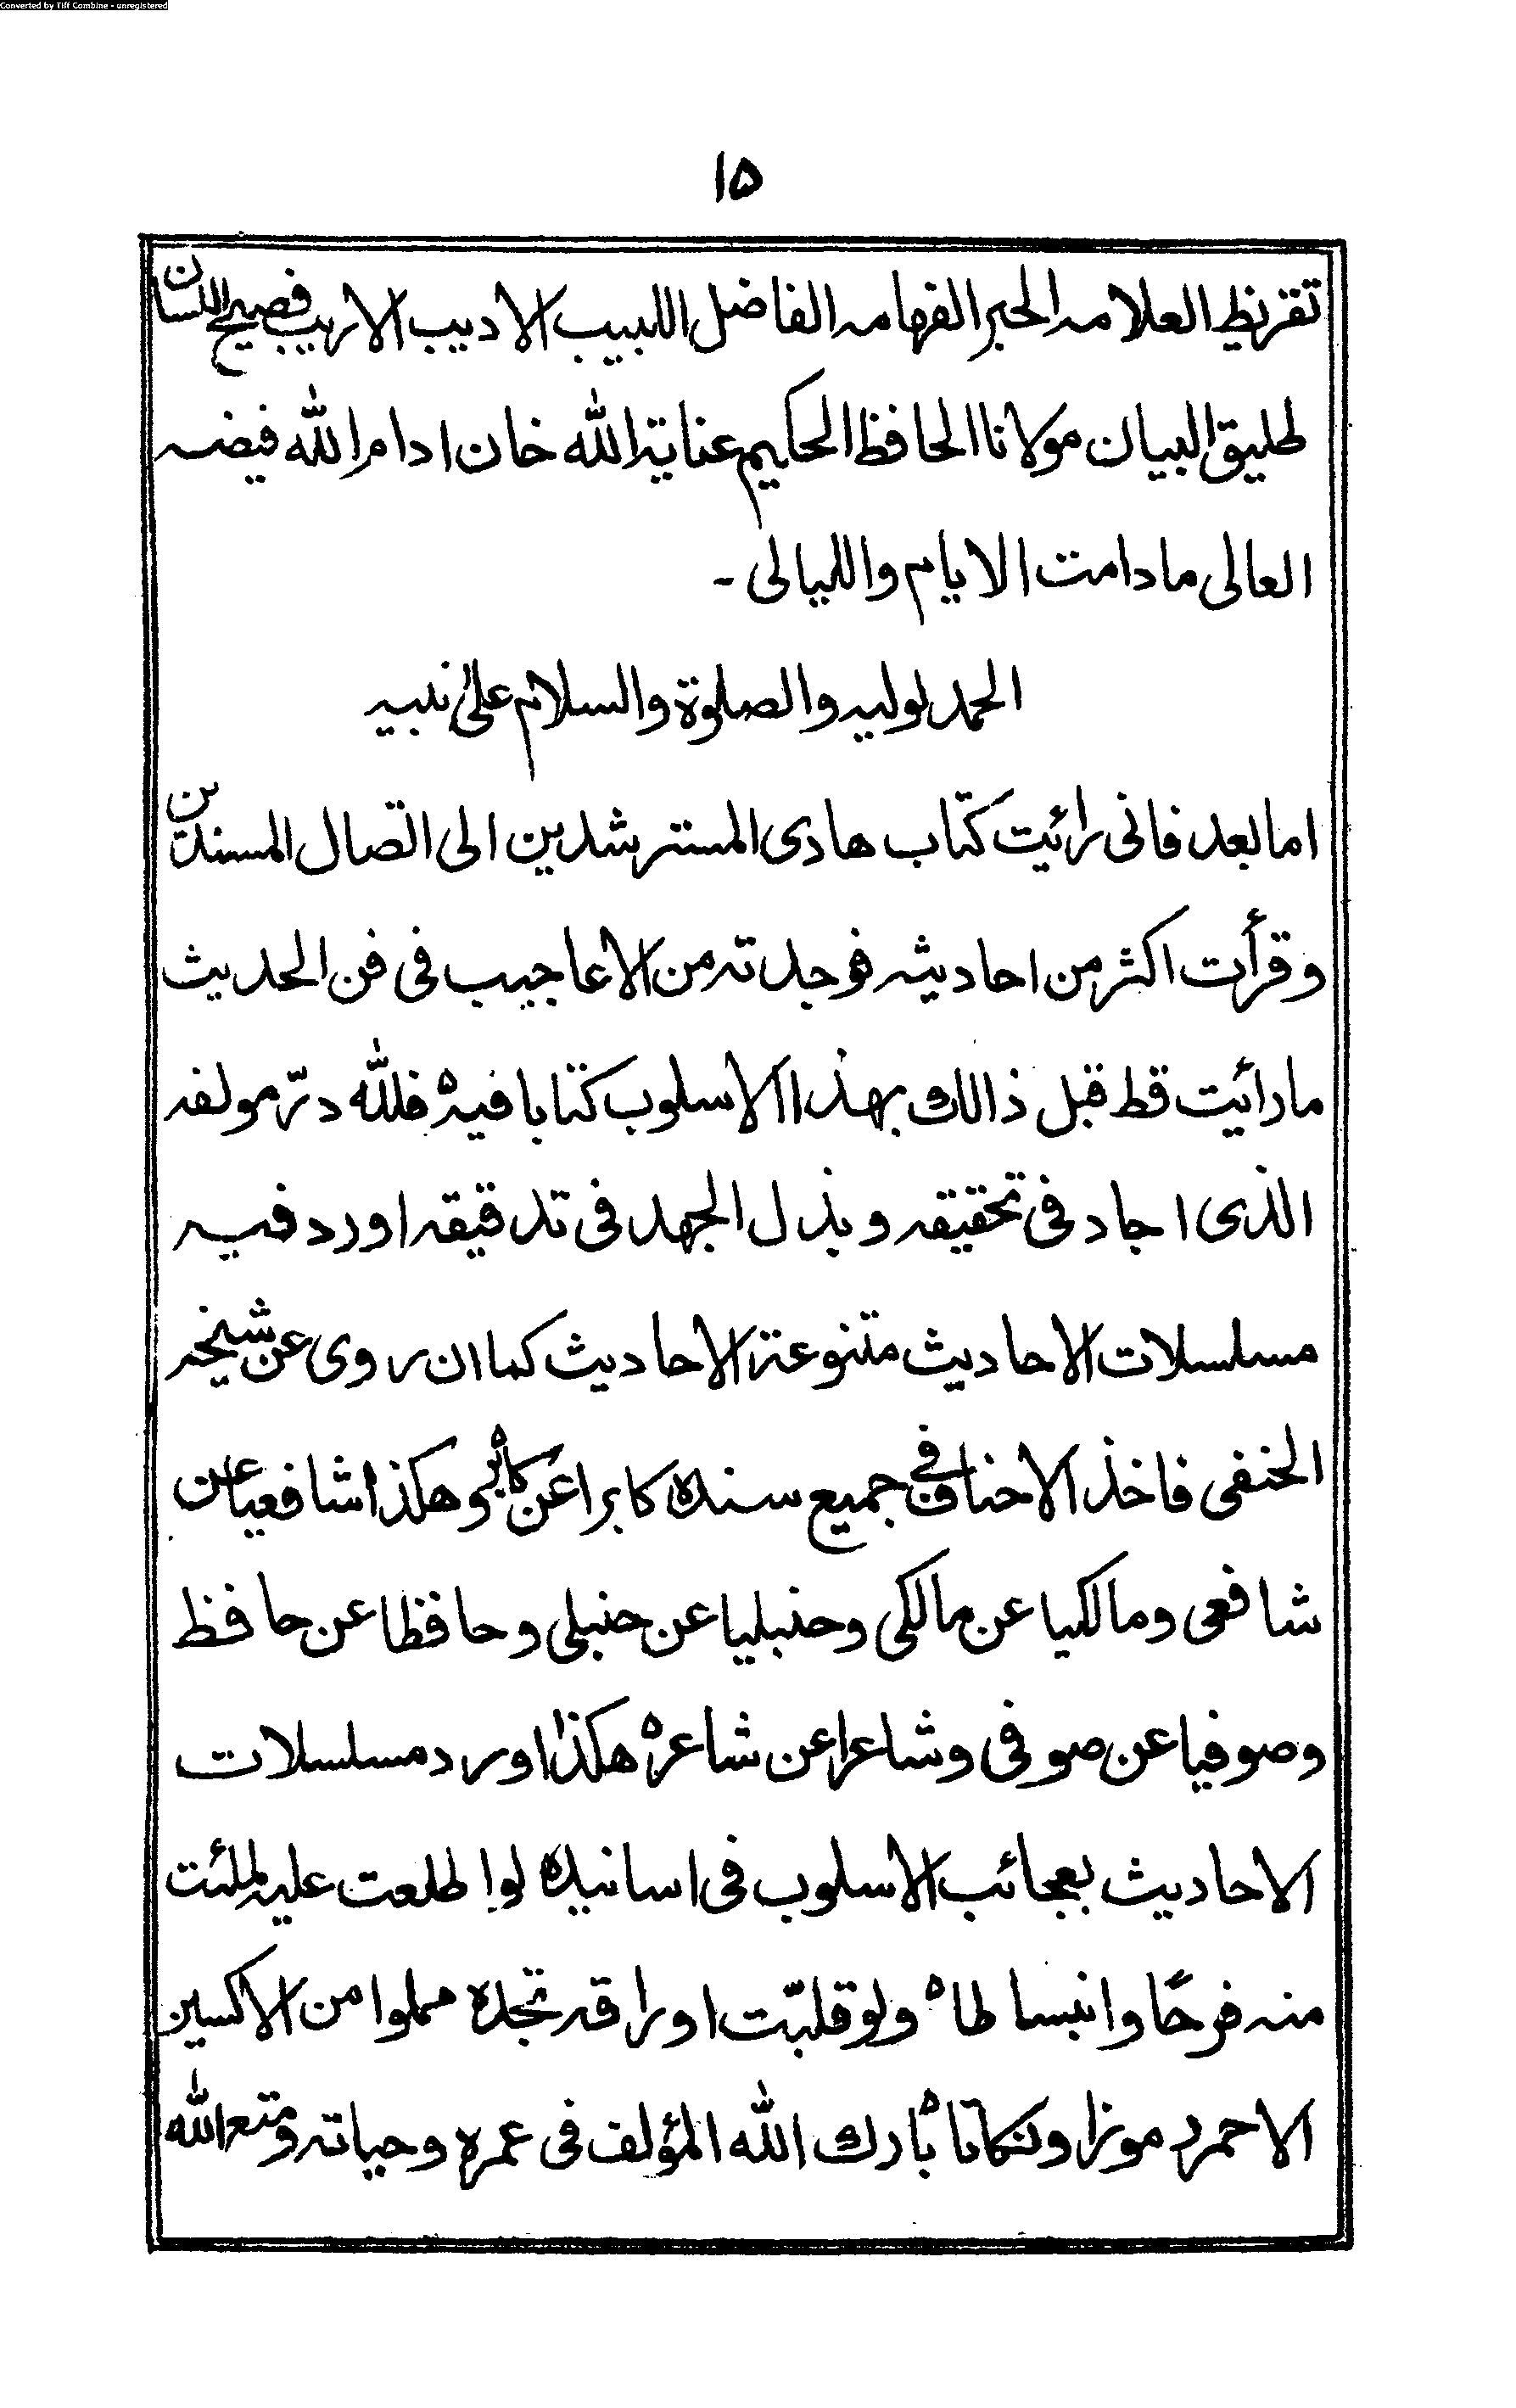 Converted by Tiff Combine - unregistered
۱۵
تقریظ العلامہ الحبر الفہامہ الفاضل اللبیب الادیب الاریب فصیح اللسان
طلیق البیان مولانا الحافظ الحکیم عنایۃ اللہ خان ادام اللہ فیضہ
العالی مادامت الایام واللیالی ۔
الحمد لولیہ والصلوۃ والسلام علیٰ نبیہ
اما بعد فانی رائیت کتاب ھادی المسترشدین الی اتصال المسندین
وقرأت اکثر من احادیثہ فوجدتہ من الاعاجیب فی فن الحدیث
مارائیت قط قبل ذالک بھذا الاسلوب کتابا فیہ فللہ درّ مولفہ
الذی اجاد فی تحقیقہ وبذل الجھد فی تدقیقہ اورد فیہ
مسلسلات الاحادیث متنوعۃ الاحادیث کما ان روی عن شیخہ
الحنفی فاخذ الاحناف فی جمیع سندہ کابرا عن کابر وھکذا شافعیا عن
شافعی ومالکیا عن مالکی وحنبلیا عن حنبلی وحافظا عن حافظ
وصوفیا عن صوفی وشاعرا عن شاعر ھکذا اورد مسلسلات
الاحادیث بعجائب الاسلوب فی اسانیدہ لو اطلعت علیہ لملئت
منہ فرحًا وانبساطا ولو قلبّت اوراقہ تجدہ مملوا من الاکسیر
الاحمر رموزا ونکاتا بارک اللہ المؤلف فی عمرہ وحیاتہ ومتع اللہ